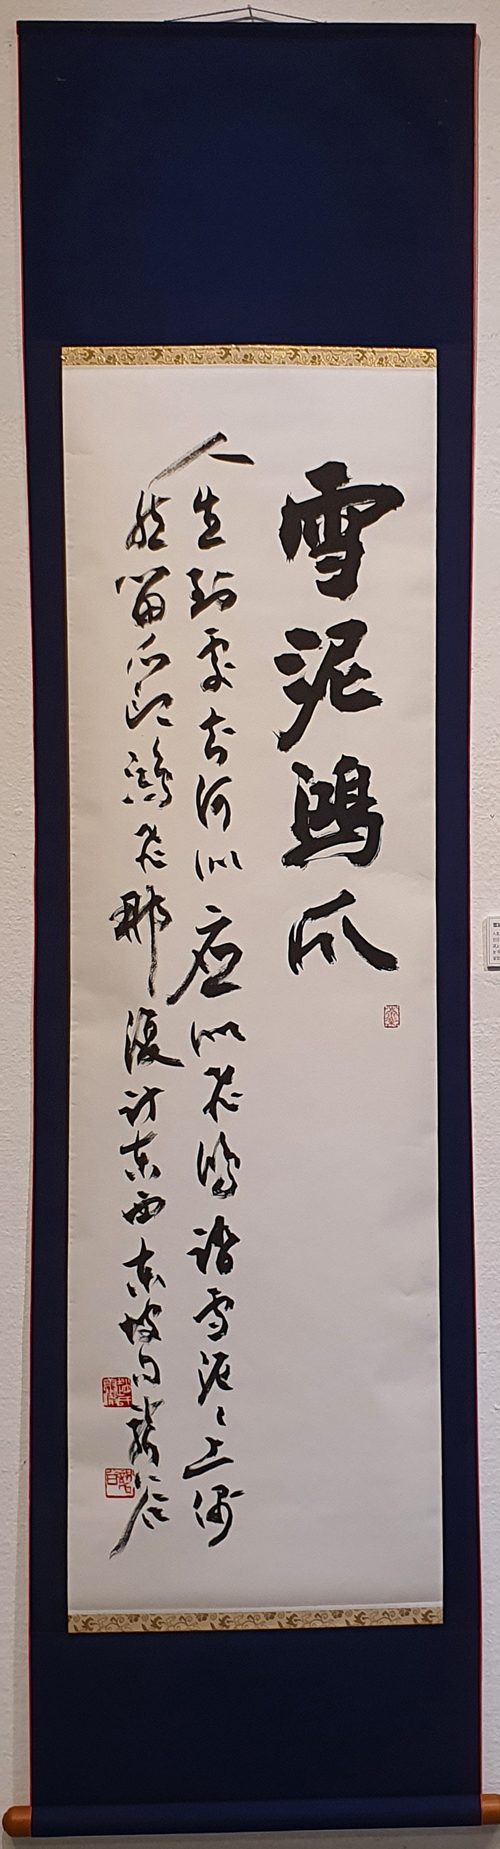 雪泥鴻爪
人生到處知何似應似飛鴻踏雪泥々上偶
然留爪鴻飛那復計東西東坡句